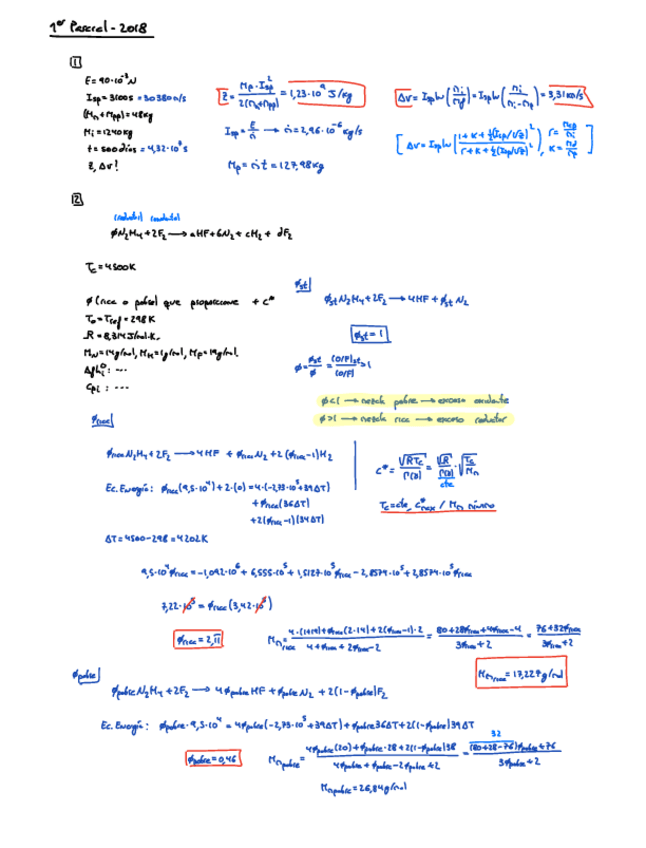 1er Parcial - 2018
1
F = 90·10⁻³ N
Isp = 3100s = 30380 m/s
(Mm + Mpp) = 48kg
Mi = 1240kg
t = 500 días = 4,32·10⁷ s
Z, Δv?
Z = Mp·Isp² / 2(Mm+Mpp) = 1,23·10⁹ J/kg
Isp = F/ṁ → ṁ = 2,96·10⁻⁶ kg/s
Mp = ṁt = 127,98kg
Δv = Isp ln(Mi/Mf) = Isp ln(Mi/(Mi-Mp)) = 3,31 km/s
2
reductor oxidante
ϕN₂H₄ + 2F₂ → aHF + bN₂ + cH₂ + dF₂
Tc = 4500K
ϕ (rica o pobre) que proporcione + c*
To = Tref = 298K
R = 8,314 J/mol·K.
MN = 14g/mol, MH = 1g/mol, MF = 19g/mol.
Δfhi⁰: ...
Cpi: ...
ϕst
ϕst N₂H₄ + 2F₂ → 4HF + ϕst N₂
ϕst = 1
ϕ<1 → mezcla pobre → exceso oxidante
ϕ>1 → mezcla rica → exceso reductor
ϕrica
ϕrica N₂H₄ + 2F₂ → 4HF + ϕrica N₂ + 2(ϕrica-1)H₂
Ec. Energía: ϕrica(9,5·10⁴) + 2·(0) = 4·(-2,73·10⁵ + 39ΔT)
+ϕrica(36ΔT)
+2(ϕrica-1)(34ΔT)
c* = √(RTc)/Γ(γ) = √R/Γ(γ) · √(Tc/Mm)
cte
Tc = cte, c*max / Mm mínimo
ΔT = 4500-298 = 4202K
9,5·10⁴ϕrica = -1,092·10⁶ + 6,555·10⁵ + 1,5127·10⁵ϕrica - 2,8574·10⁵ + 2,8574·10⁵ϕrica
7,22·10⁵ = ϕrica(3,42·10⁵)
ϕrica = 2,11
Mm rica = (4·(1+19) + ϕrica(2·14) + 2(ϕrica-1)·2) / (4 + ϕrica + 2ϕrica - 2) = (80 + 28ϕrica + 4ϕrica - 4) / (3ϕrica + 2) = (76 + 32ϕrica) / (3ϕrica + 2)
Mm rica = 17,229 g/mol
ϕpobre
ϕpobre N₂H₄ + 2F₂ → 4ϕpobre HF + ϕpobre N₂ + 2(1-ϕpobre)F₂
Ec. Energía: ϕpobre·9,5·10⁴ = 4ϕpobre(-2,73·10⁵ + 39ΔT) + ϕpobre 36ΔT + 2(1-ϕpobre)39ΔT
ϕpobre = 0,46
Mm pobre = (4ϕpobre(20) + ϕpobre·28 + 2(1-ϕpobre)38) / (4ϕpobre + ϕpobre - 2ϕpobre + 2) = ((80+28-76)ϕpobre + 76) / (3ϕpobre + 2)
32
Mm pobre = 26,84 g/mol